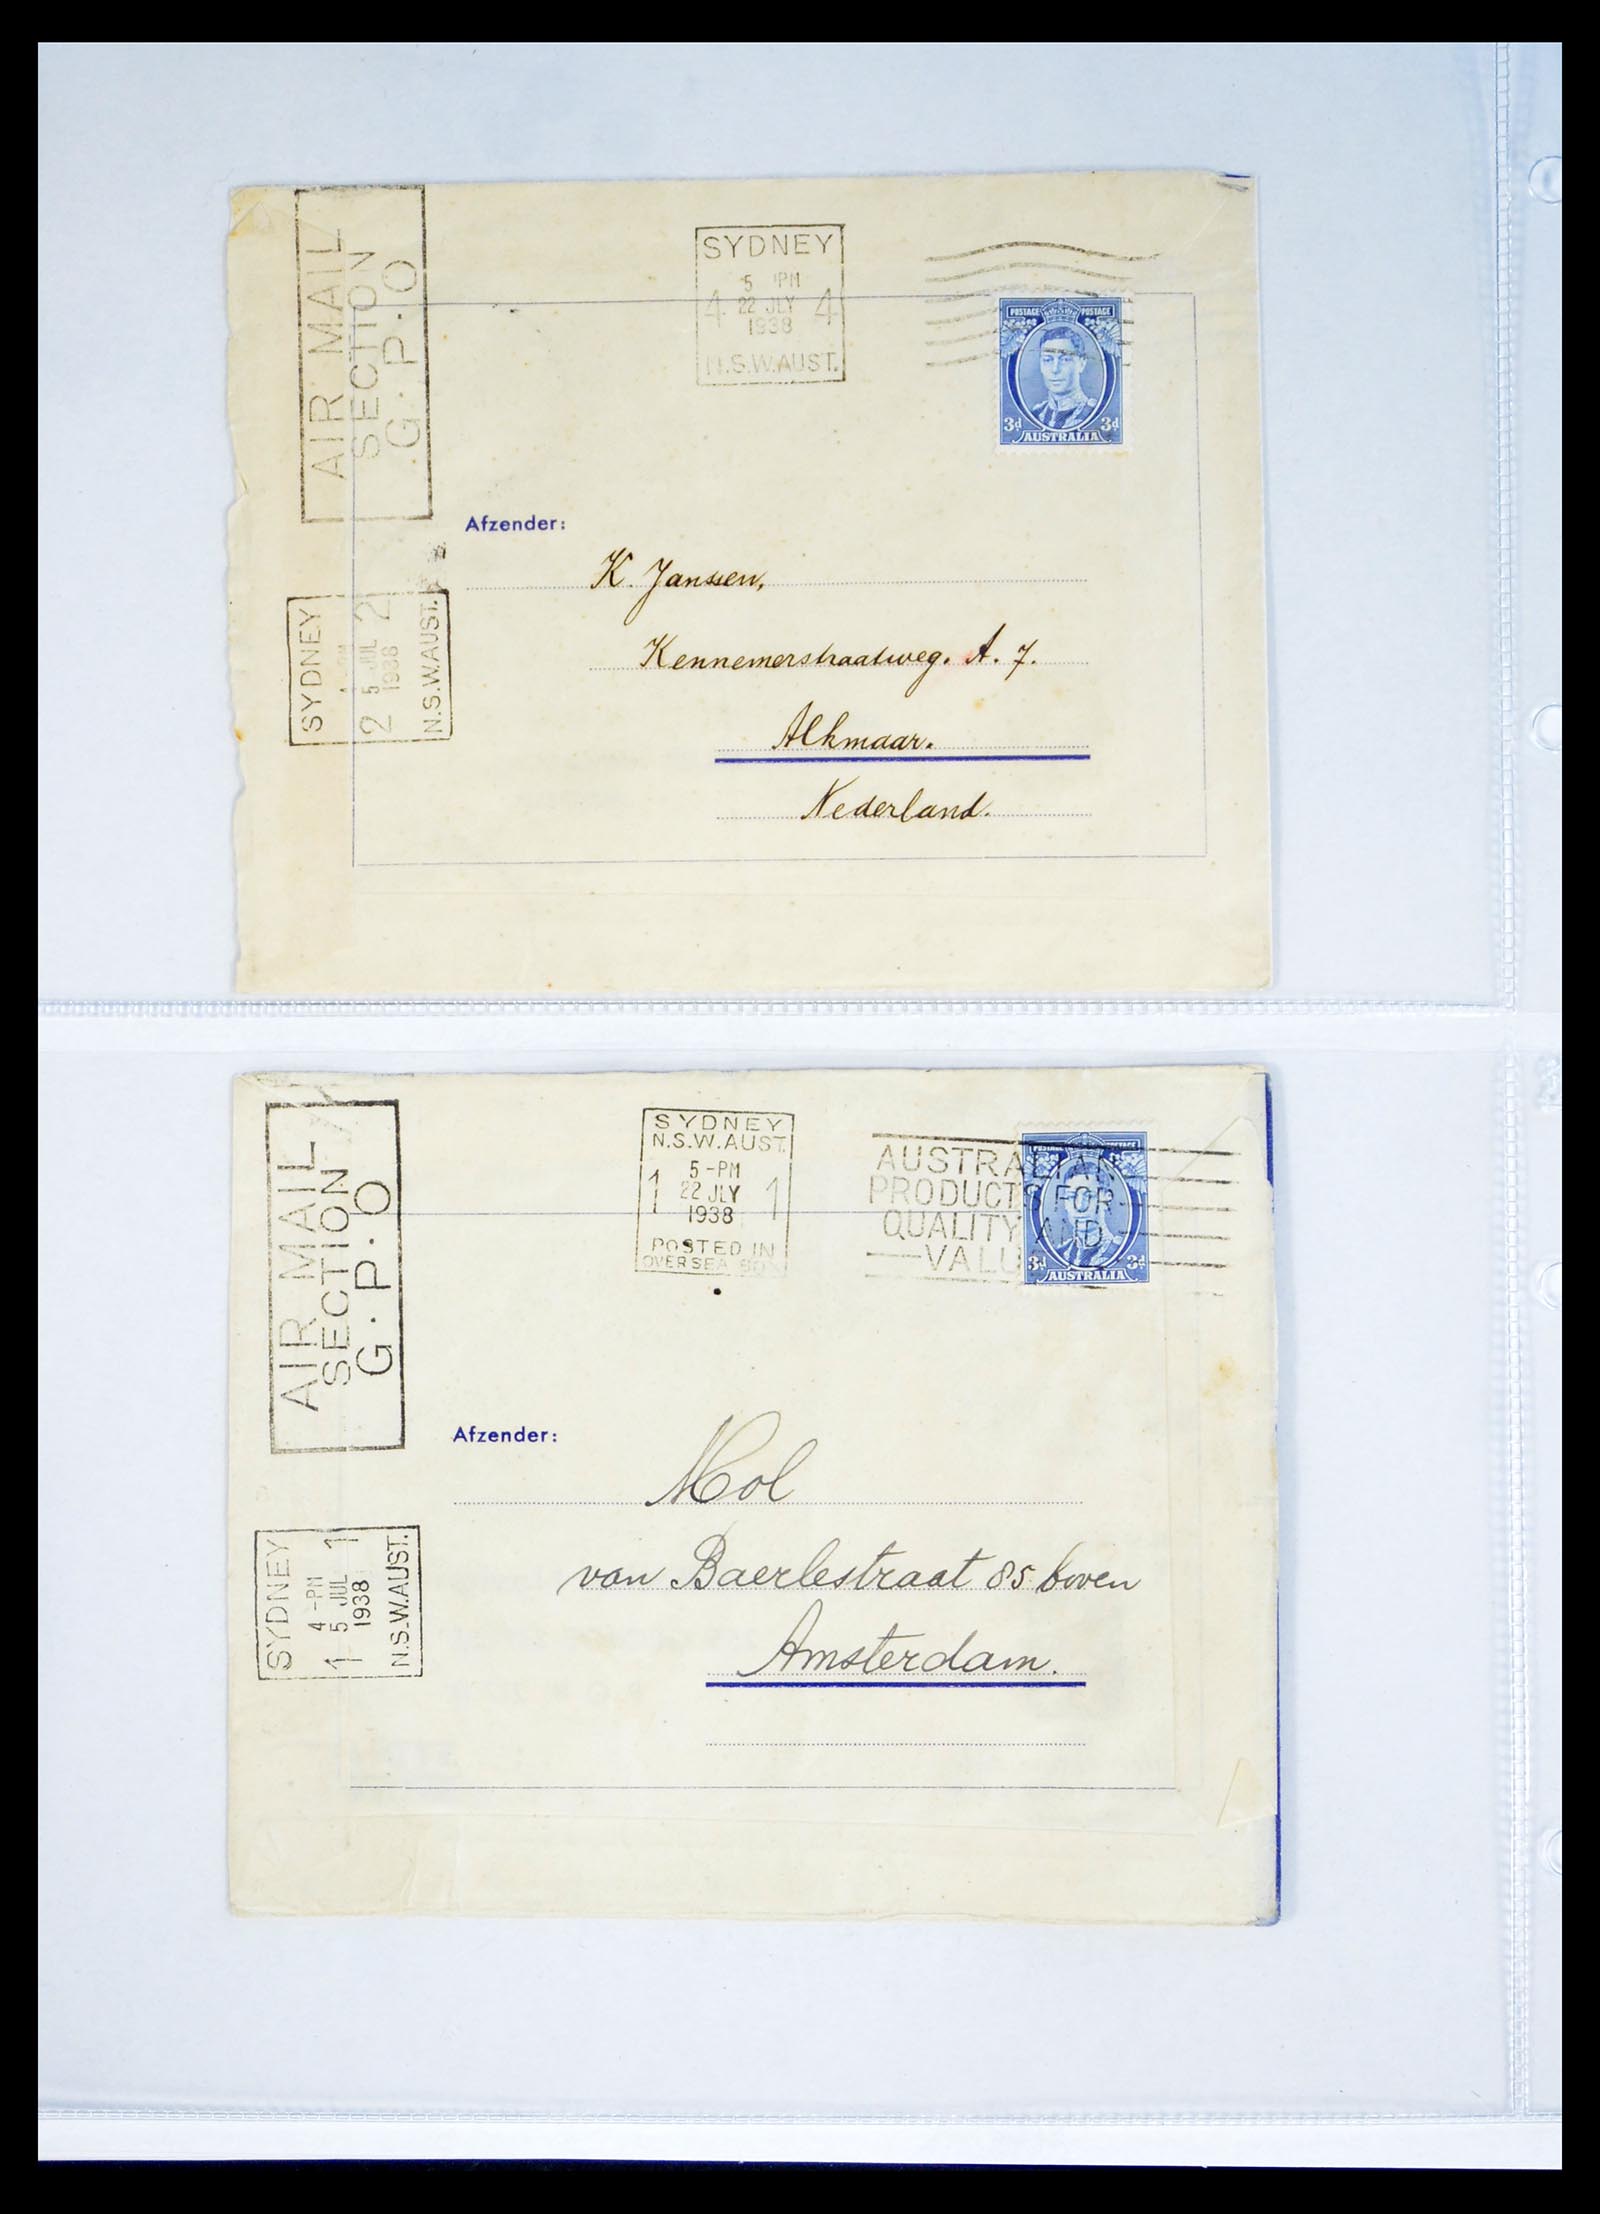 AIR MAIL
SECTION
G.P.O
SYDNEY
5 PM
4 22 JLY 4
1938
N.S.W.AUST.
POSTAGE POSTAGE
3d 3d
AUSTRALIA
Afzender:
K. Janssen,
Kennemerstraatweg. A. 7.
Alkmaar.
Nederland.
SYDNEY
2 5 JUL 2
1938
N.S.W.AUST.
AIR MAIL
SECTION
G.P.O
SYDNEY
N.S.W.AUST.
5-PM
1 22 JLY 1
1938
POSTED IN
OVERSEA BOX
AUSTRALIAN
PRODUCTS FOR
QUALITY AND
VALUE
POSTAGE POSTAGE
3d 3d
AUSTRALIA
Afzender:
Mol
van Baerlestraat 85 boven
Amsterdam.
SYDNEY
4-PM
1 5 JUL 1
1938
N.S.W.AUST.